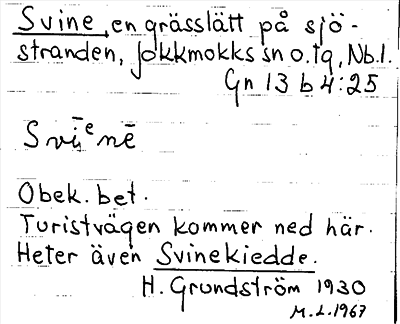 Svine, en grässlätt på sjö-
stranden, Jokkmokks sn o. tg, Nb.l.
Gn 13 b 4:25
Obek. bet.
Turistvägen kommer ned här.
Heter även Svinekiedde.
H. Grundström 1930
M.L. 1967